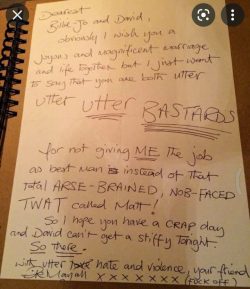 Dearest
Billie-Jo and David,
obviously I wish you a
joyous and magnificent marriage
and life together but I just want
to say that you are both utter
utter utter BASTARDS
for not giving ME the job
as best man instead of that
total ARSE-BRAINED, NOB-FACED
TWAT called Matt!
So I hope you have a CRAP day
and David can't get a stiffy tonight.
So there.
with utter hate and violence, your friend
Rik Mayall x x x x x x (FUCK OFF)